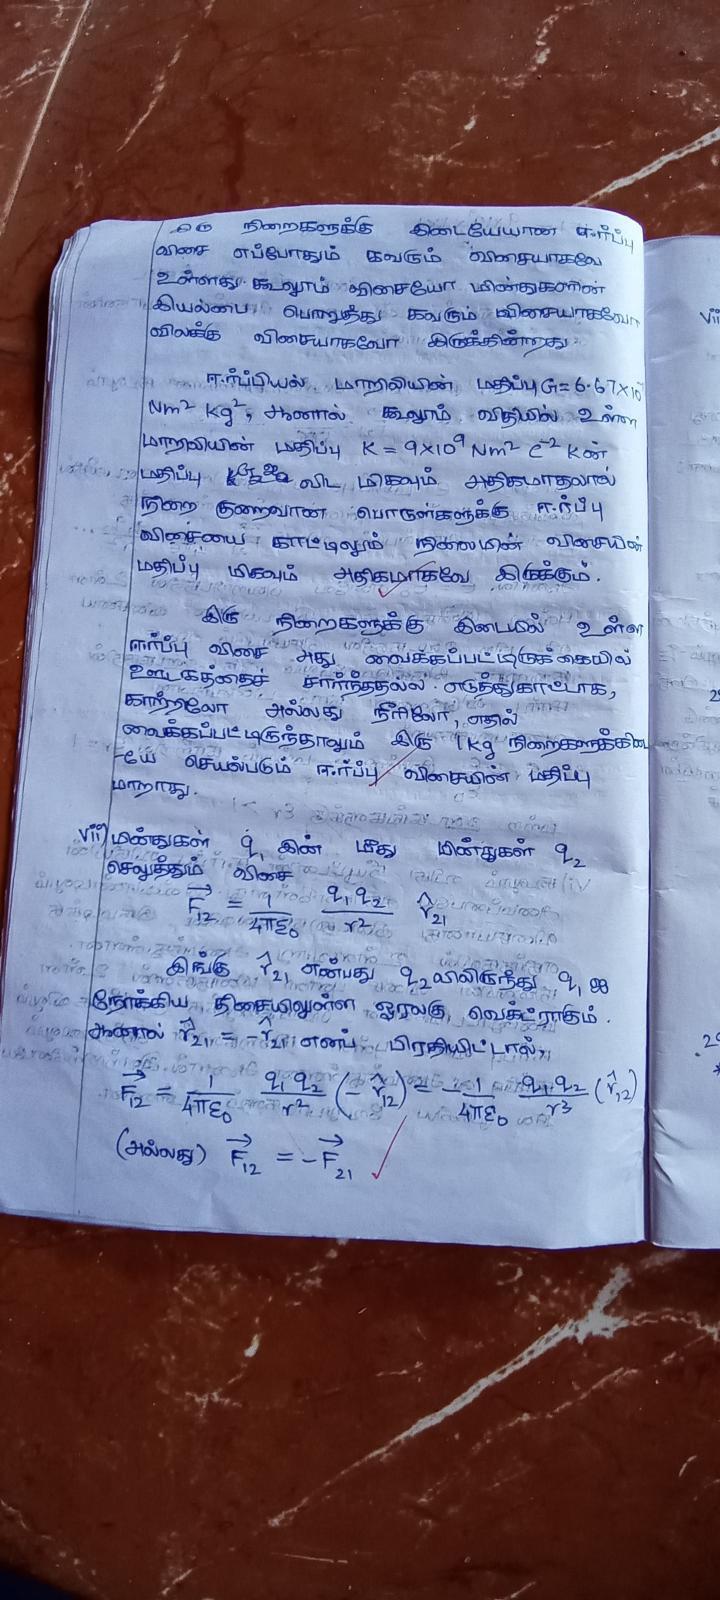 இரு நிறைகளுக்கு இடையேயான ஈர்ப்பு
விசை எப்போதும் கவரும் விசையாகவே
உள்ளது. கூலூம் விசையோ மின்துகளின்
இயல்பை பொறுத்து கவரும் விசையாகவோ
விலக்கு விசையாகவோ இருக்கின்றது.
ஈர்ப்பியல் மாறிலியின் மதிப்பு G = 6.67×10
Nm² Kg², ஆனால் கூலூம் விதியில் உள்ள
மாறிலியின் மதிப்பு K = 9×10⁹ Nm² C⁻² Kன்
மதிப்பு விட மிகவும் அதிகமாதலால்
நிறை குறைவான பொருள்களுக்கு ஈர்ப்பு
விசையை காட்டிலும் நிலைமின் விசையின்
மதிப்பு மிகவும் அதிகமாகவே இருக்கும்.
இரு நிறைகளுக்கு இடையில் உள்ள
ஈர்ப்பு விசை அது வைக்கப்பட்டிருக்கையில்
ஊடகத்தைச் சார்ந்ததல்ல. எடுத்துகாட்டாக,
காற்றிலோ அல்லது நீரிலோ, எதில்
வைக்கப்பட்டிருந்தாலும் இரு 1Kg நிறைகளுக்கிடை
-யே செயல்படும் ஈர்ப்பு விசையின் மதிப்பு
மாறாது.
vii) மின்துகள் q₁ இன் மீது மின்துகள் q₂
செலுத்தும் விசை
F⃗₁₂ = 1/4πε₀ q₁q₂/r² r̂₂₁
இங்கு r̂₂₁ என்பது q₂ விலிருந்து q₁ ஐ
நோக்கிய திசையிலுள்ள ஓரலகு வெக்டராகும்.
ஆனால் r̂₂₁ = r̂₂₁ எனப் பிரதியிட்டால்,
F⃗₁₂ = 1/4πε₀ q₁q₂/r² (-r̂₁₂) = -1/4πε₀ q₁q₂/r³ (r̂₁₂)
(அல்லது) F⃗₁₂ = -F⃗₂₁